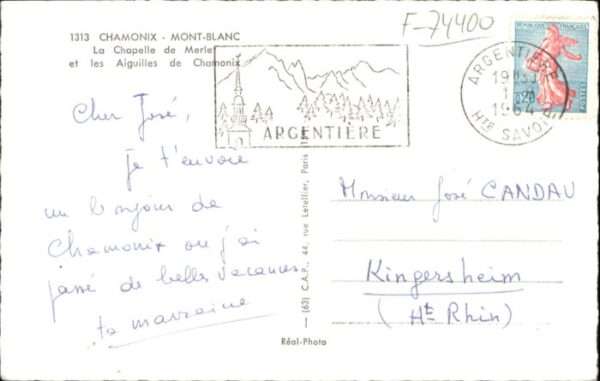 1313 CHAMONIX - MONT-BLANC
La Chapelle de Merlet
et les Aiguilles de Chamonix
F-74400
ARGENTIÈRE
REPUBLIQUE FRANÇAISE
POSTES
0,20
ARGENTIÈRE
19H
1964
HTE SAVOIE
Cher José,
je t'envoie
un bonjour de
Chamonix ou j'ai
passé de belles vacances
ta marraine
(63) C.A.P., 44, rue Letellier, Paris
Monsieur José CANDAU
Kingersheim
(Ht Rhin)
Réal-Photo